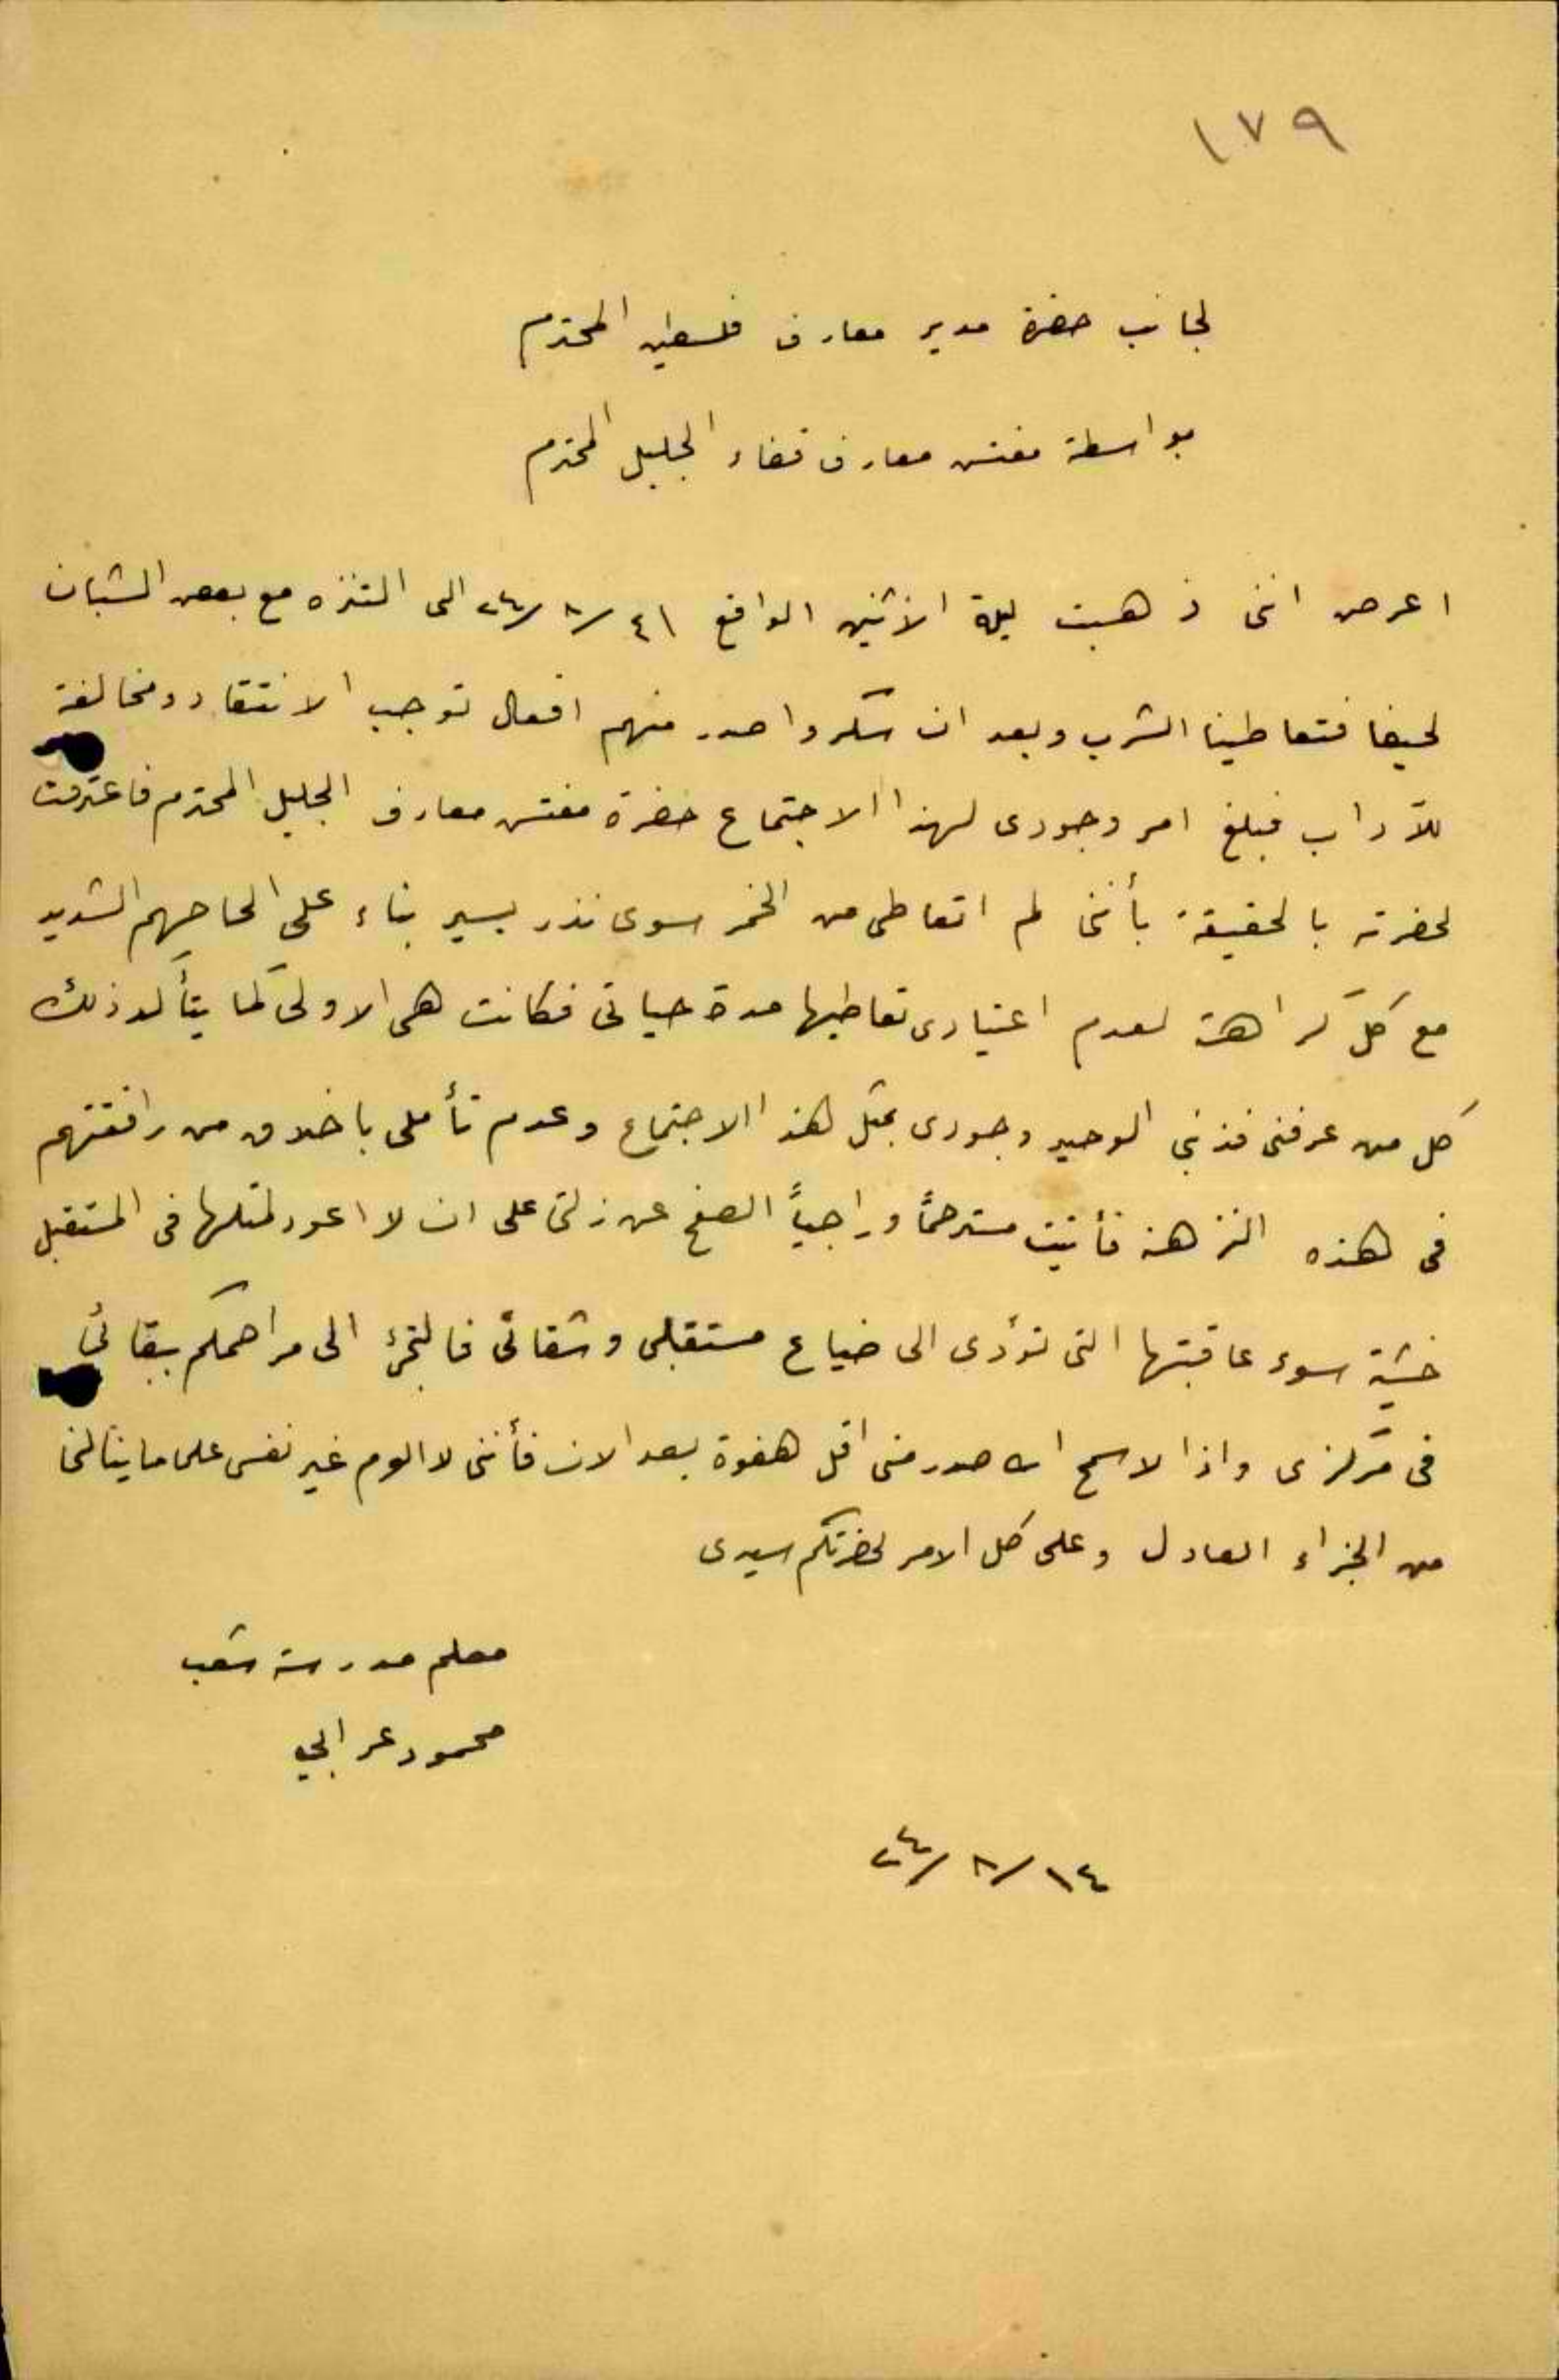 ١٧٩
لجانب حضرة مدير معارف فلسطين المحترم
بواسطة مفتش معارف قضاء الجليل المحترم
اعرض انني ذهبت ليلة الاثنين الواقع ٤١ /٨/ ٢٤ الى التنزه مع بعض الشبان
لحيفا فتعاطينا الشرب وبعد ان سكروا صدر منهم افعال توجب الانتقاد ومخالفة
للآداب فبلغ امر وجودى لهذا الاجتماع حضرة مفتش معارف الجليل المحترم فاعترفت
لحضرته بالحقيقة بأننى لم اتعاطى من الخمر سوى نذر يسير بناء على الحاحهم الشديد
مع كل كراهة لعدم اعتيادى تعاطيها مدة حياتى فكانت هى الاولى كما يتأكد ذلك
كل من عرفنى فذنبي الوحيد وجودى بمثل هذا الاجتماع وعدم تأملى باخلاق من رافقتهم
فى هذه النزهة فأتيت مسترحماً وراجياً الصفح عن زلتى على ان لا اعود لمثلها فى المستقبل
خشية سوء عاقبتها التى تؤدى الى ضياع مستقبلى وشقائى فالتجئ الى مراحمكم ببقائى
فى مركزى واذا لا سمح الله صدر منى اقل هفوة بعد الان فأننى لا الوم غير نفسى على ما ينالنى
من الجزاء العادل وعلى كل الامر لحضرتكم سيدى
معلم مدرسة شعب
محمود عرابي
١٤ /٨/ ٢٤